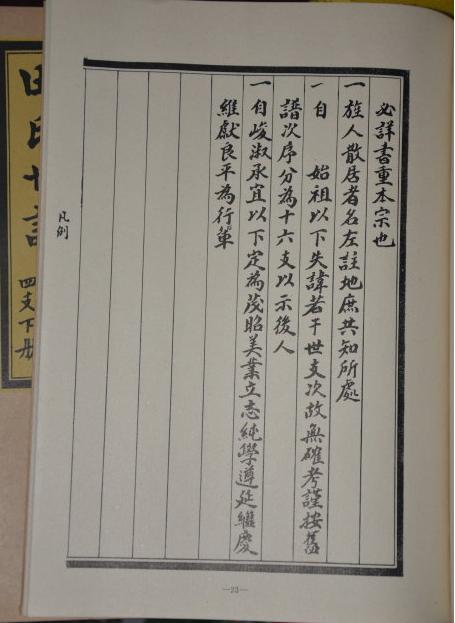 必詳書重本宗也
一 族人散居者名左註地庶共知所處
一 自 始祖以下失諱若干世支次故無確考謹按舊
譜次序分為十六支以示後人
一 自峻淑承宜以下定為茂昭美業立志純學遵延繼慶
維獻良平為行軰
凡例
—23—
田氏世譜
四支下册